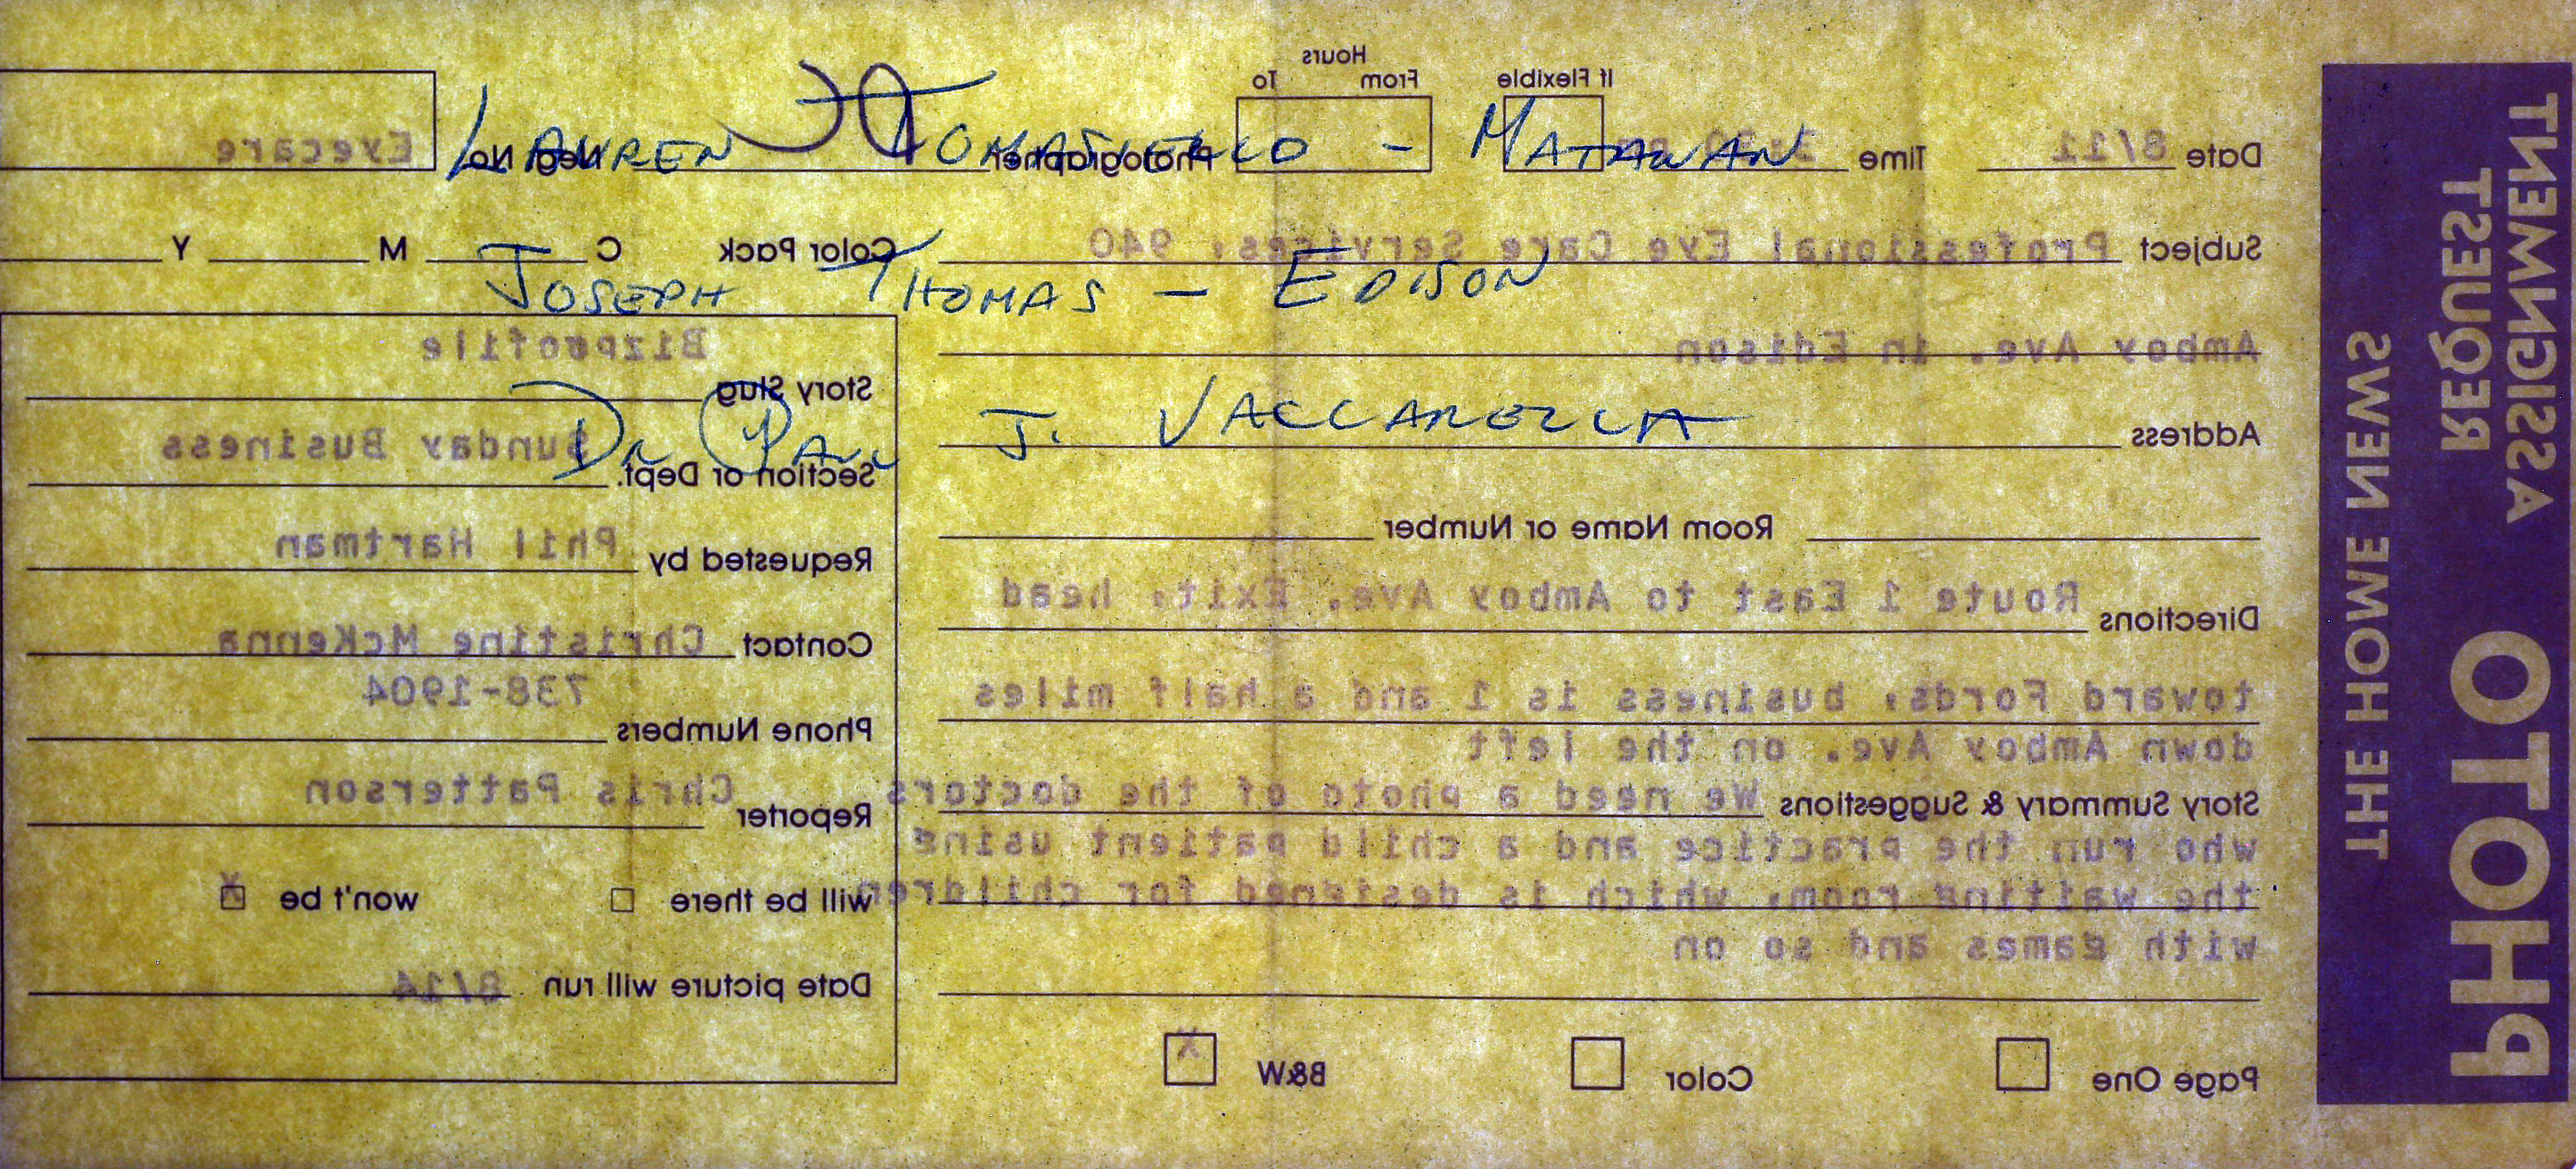 LAUREN TOMASIELLO - MATAWAN
JOSEPH THOMAS - EDISON
DR PAUL J. VACCARELLA
THE HOME NEWS
PHOTO
ASSIGNMENT
REQUEST
Date 8/11 Time If Flexible Hours From To Photographer Neg No. Eyecare
Subject Professional Eye Care Services, 940
Amboy Ave. in Edison
Address
Room Name or Number
Directions Route 1 East to Amboy Ave. Exit, head
toward Fords, business is 1 and a half miles
down Amboy Ave. on the left
Story Summary & Suggestions We need a photo of the doctors
who run the practice and a child patient using
the waiting room, which is designed for children
with games and so on
Page One Color B&W X
Color Pack C M Y
Story Slug Bizprofile
Section or Dept. Sunday Business
Requested by Phil Hartman
Contact Christine McKenna
Phone Numbers 738-1904
Reporter Chris Patterson
will be there won't be X
Date picture will run 8/14